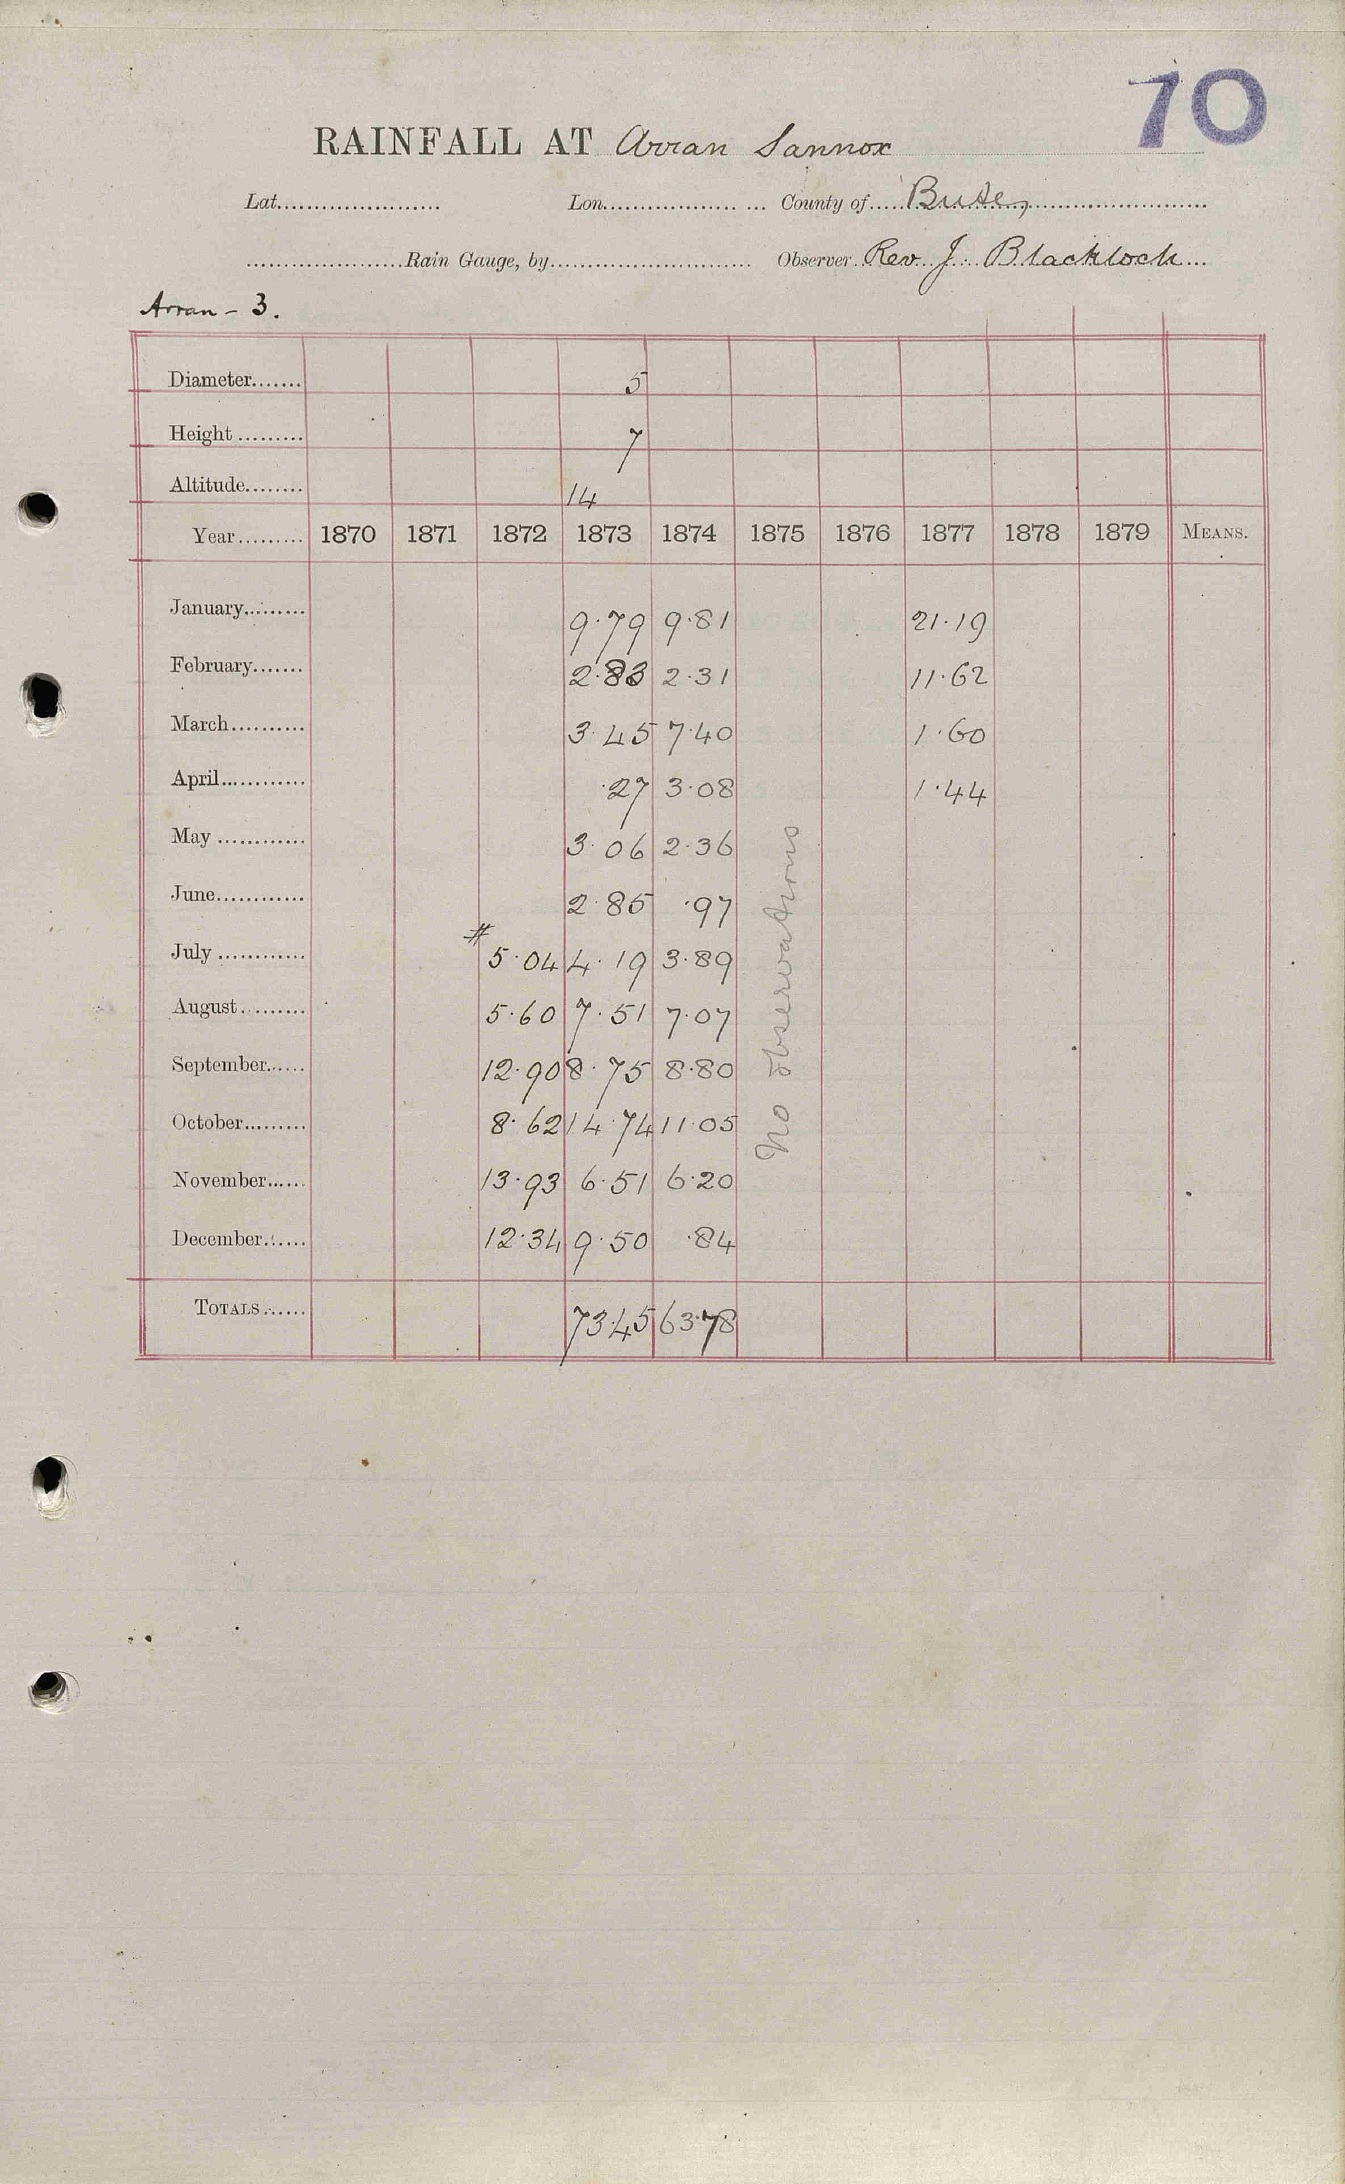 70
RAINFALL AT Arran Sannox
Lat...................... Lon.................. ... County of.....Bute,..........................
......................Rain Gauge, by............................ Observer..Rev. J. Blacklock...
Arran - 3.
Diameter....... 5
Height ......... 7
Altitude........ 14
Year......... 1870 1871 1872 1873 1874 1875 1876 1877 1878 1879 MEANS.
January......... 9.79 9.81 21.19
February....... 2.83 2.31 11.62
March.......... 3.45 7.40 1.60
April............ .27 3.08 1.44
May ............ 3.06 2.36
June............ 2.85 .97
#
July ............ 5.04 4.19 3.89
August.......... 5.60 7.51 7.07
September...... 12.90 8.75 8.80
October......... 8.62 14.74 11.05
November...... 13.93 6.51 6.20
December....... 12.34 9.50 .84
No observations
TOTALS....... 73.45 63.78